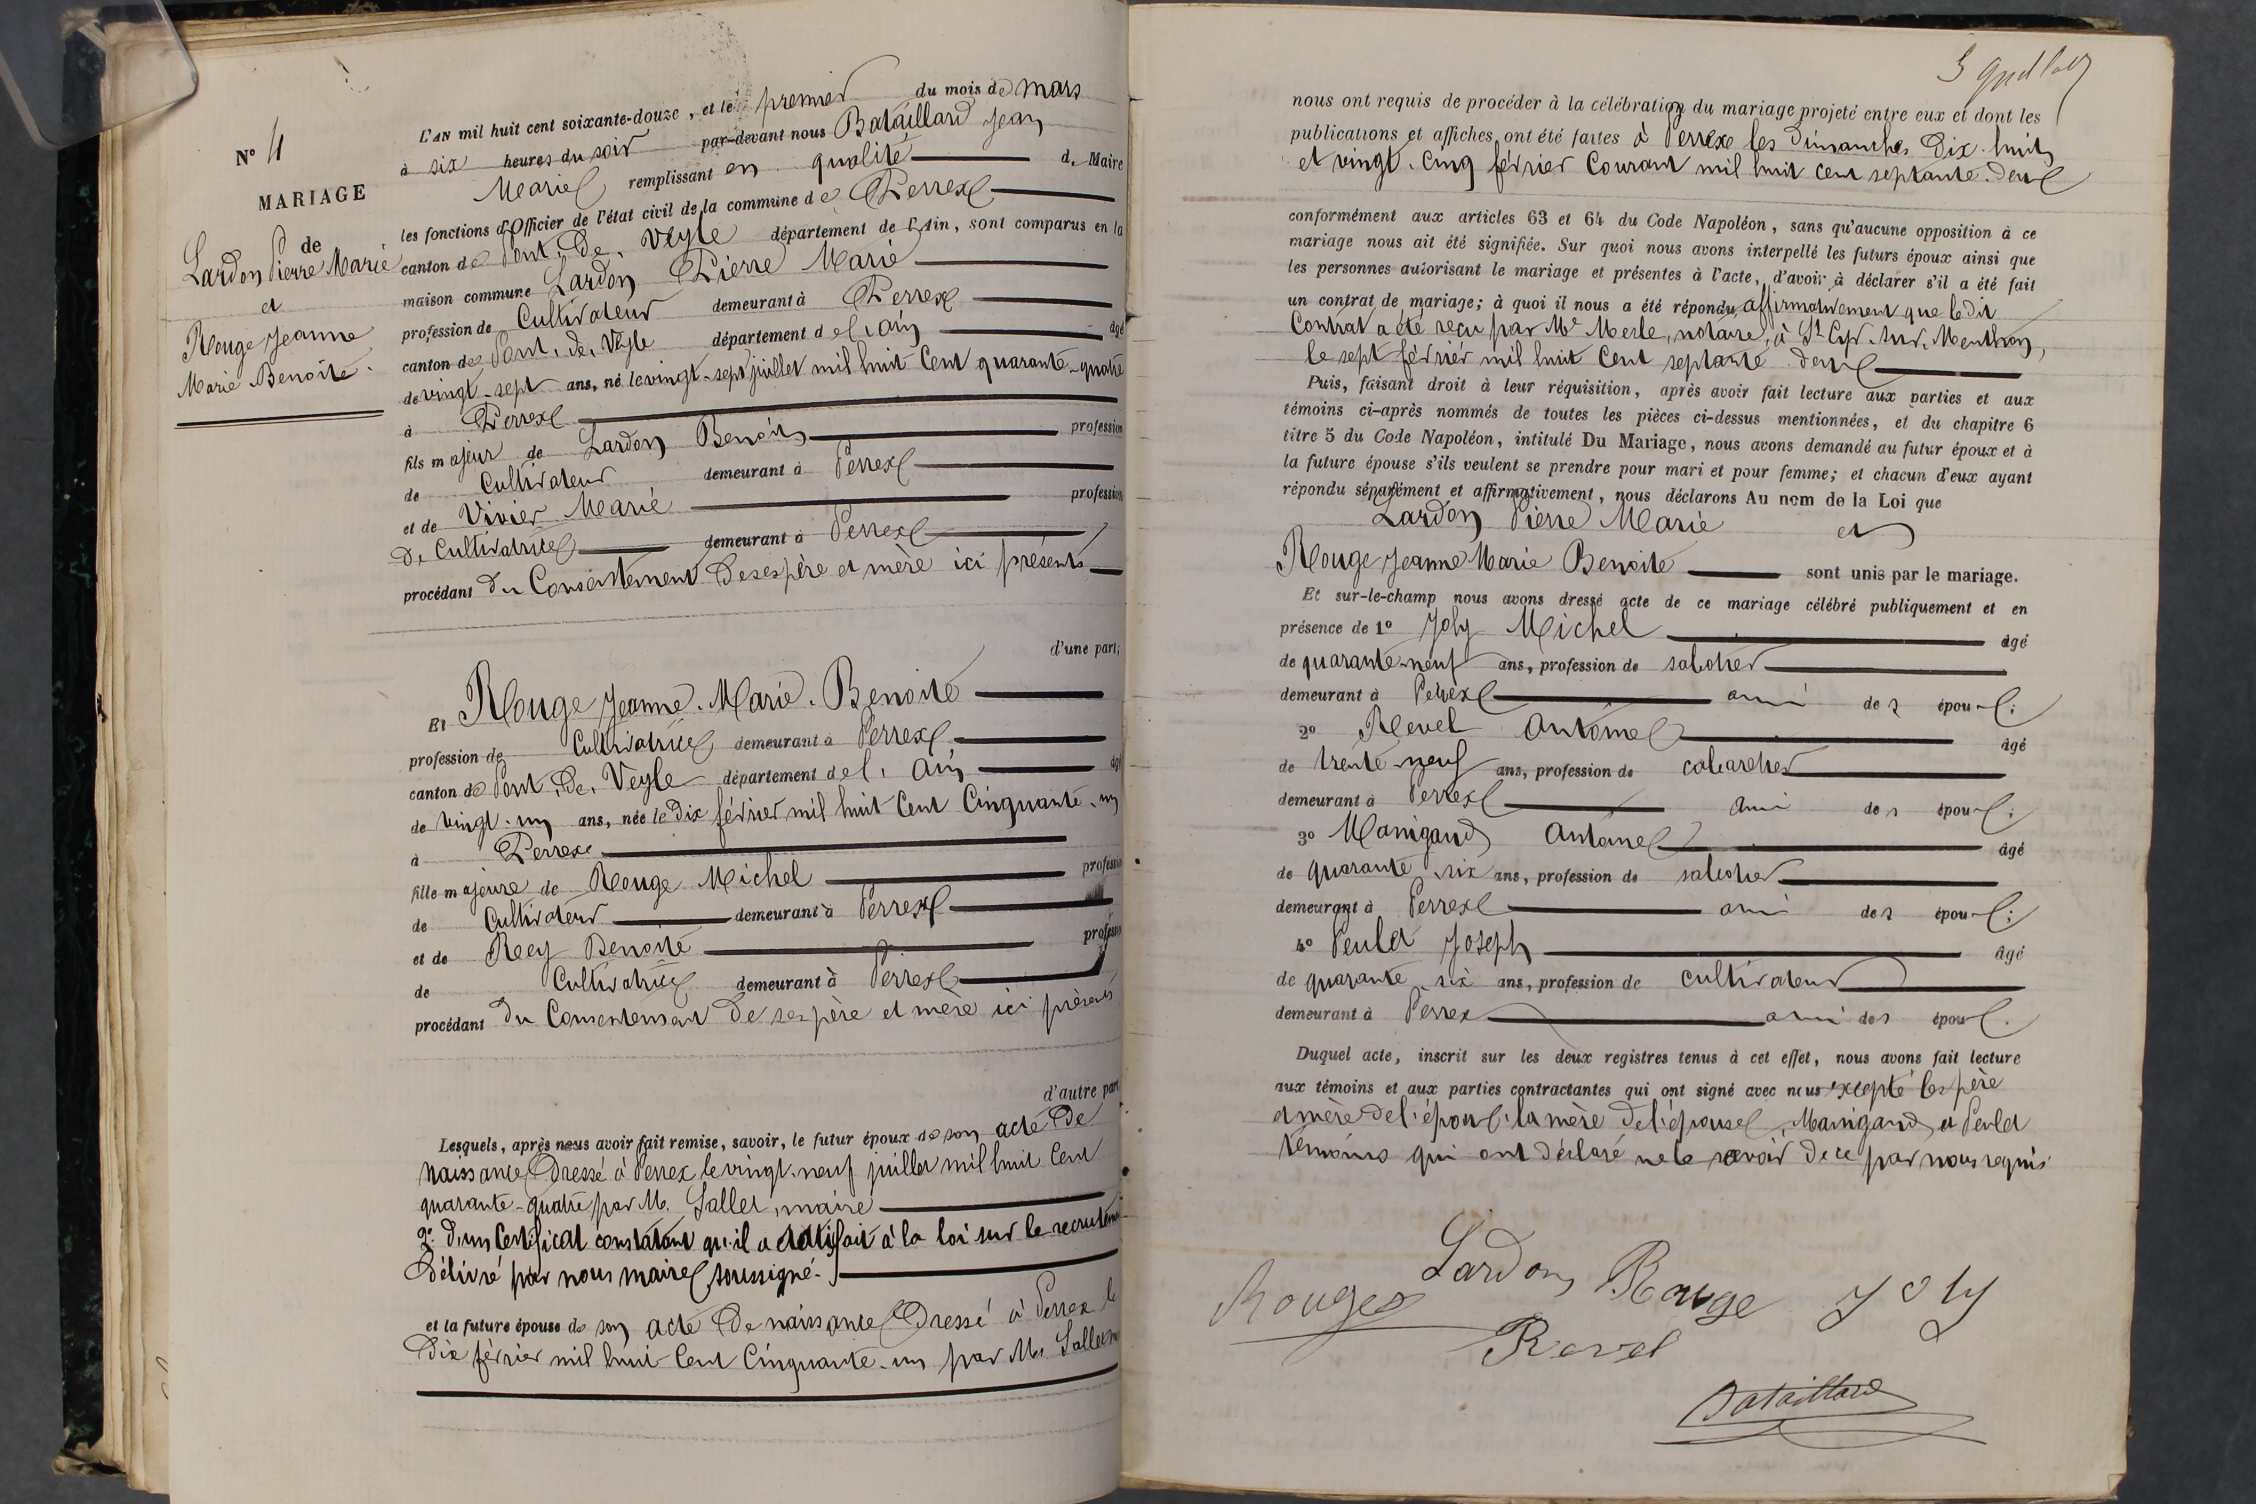 N° 4
MARIAGE
de
Lardon Pierre Marie
et
Rouge Jeanne
Marie Benoite.
L'AN mil huit cent soixante-douze, et le premier du mois de mars
à six heures du soir par-devant nous Bataillard Jean
Marie remplissant en qualité de Maire
les fonctions d'Officier de l'état civil de la commune de Perrex
canton de Pont. de. Veyle département de l'Ain, sont comparus en la
maison commune Lardon Pierre Marie
profession de Cultivateur demeurant à Perrex
canton de Pont. de. Veyle département de l'ain âgé
de vingt-sept ans, né le vingt-sept juillet mil huit Cent quarante-quatre
à Perrex
fils majeur de Lardon Benoit profession
de Cultivateur demeurant à Perrex
et de Vivier Marie profession
de Cultivatrice demeurant à Perrex
procédant du Consentement de ses père et mère ici présents
d'une part;
Et Rouge Jeanne. Marie. Benoite
profession de Cultivatrice demeurant à Perrex
canton de Pont. de. Veyle département de l'Ain âgé
de vingt. un ans, née le dix février mil huit Cent Cinquante-un
à Perrex
fille majeure de Rouge Michel profession
de Cultivateur demeurant à Perrex
et de Rey Benoite profession
de Cultivatrice demeurant à Perrex
procédant du Consentement de ses père et mère ici présents
d'autre part
Lesquels, après nous avoir fait remise, savoir, le futur époux de son acte de
naissance Dressé à Perrex le vingt-neuf juillet mil huit Cent
quarante-quatre par M. Sallet, maire
2° d'un Certificat constatant qu'il a satisfait à la loi sur le recrutement
Délivré par nous maire soussigné.
et la future épouse de son acte de naissance Dressé à Perrex le
dix février mil huit Cent Cinquante-un par Mr Sallet
nous ont requis de procéder à la célébration du mariage projeté entre eux et dont les
publications et affiches, ont été faites à Perrex les dimanches Dix-huit
et vingt-cinq février Courant mil huit cent septante-deux
conformément aux articles 63 et 64 du Code Napoléon, sans qu'aucune opposition à ce
mariage nous ait été signifiée. Sur quoi nous avons interpellé les futurs époux ainsi que
les personnes autorisant le mariage et présentes à l'acte, d'avoir à déclarer s'il a été fait
un contrat de mariage; à quoi il nous a été répondu affirmativement que ledit
Contrat a été reçu par Me Merle, notaire, à St Cyr. sur. Menthon,
le sept février mil huit Cent septante deux
Puis, faisant droit à leur réquisition, après avoir fait lecture aux parties et aux
témoins ci-après nommés de toutes les pièces ci-dessus mentionnées, et du chapitre 6
titre 5 du Code Napoléon, intitulé Du Mariage, nous avons demandé au futur époux et à
la future épouse s'ils veulent se prendre pour mari et pour femme; et chacun d'eux ayant
répondu séparément et affirmativement, nous déclarons Au nom de la Loi que
Lardon Pierre Marie et
Rouge Jeanne Marie Benoite sont unis par le mariage.
Et sur-le-champ nous avons dressé acte de ce mariage célébré publiquement et en
présence de 1° Joly Michel âgé
de quarante-neuf ans, profession de sabotier
demeurant à Perrex ami des époux;
2° Revel Antoine âgé
de trente-neuf ans, profession de cabaretier
demeurant à Perrex ami des époux;
3° Manigand Antoine âgé
de quarante-six ans, profession de sabotier
demeurant à Perrex ami des époux;
4° Peulet Joseph âgé
de quarante-six ans, profession de cultivateur
demeurant à Perrex ami des époux.
Duquel acte, inscrit sur les deux registres tenus à cet effet, nous avons fait lecture
aux témoins et aux parties contractantes qui ont signé avec nous excepté les père
et mère de l'époux, la mère de l'épouse, Manigand et Peulet
témoins qui ont déclaré ne le savoir de ce par nous requis
Lardon Rouge Joly
Rouge
Revel
Bataillard